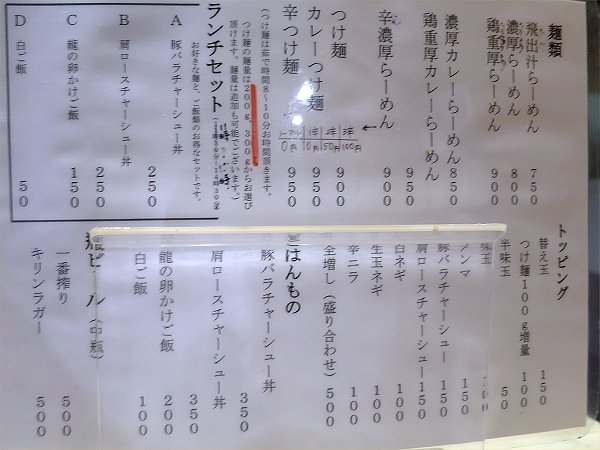 麺類
飛出汁らーめん 750
濃厚らーめん 800
鶏重厚らーめん 900
濃厚カレーらーめん 850
鶏重厚カレーらーめん 950
辛濃厚らーめん 900
ノーマル 1辛 2辛 3辛
0円 0円 50円 100円
つけ麺 900
カレーつけ麺 950
辛つけ麺 950
(つけ麺は茹で時間8~10分お時間頂きます。
つけ麺の麺量は200g、300gからお選び
頂けます。麺量は追加も可能でございます。)
ランチセット
お好きな麺と、ご飯類のお得なセットです。
A 豚バラチャーシュー丼 250
B 肩ロースチャーシュー丼 250
C 龍の卵かけご飯 150
D 白ご飯 50
トッピング
替え玉 150
つけ麺100g増量 100
半味玉 50
味玉 100
メンマ 150
豚バラチャーシュー 150
肩ロースチャーシュー 150
白ネギ 100
生玉ネギ 100
辛ニラ 100
全増し(盛り合わせ) 500
ごはんもの
豚バラチャーシュー丼 350
肩ロースチャーシュー丼 350
龍の卵かけご飯 200
白ご飯 100
瓶ビール(中瓶)
一番搾り 500
キリンラガー 500